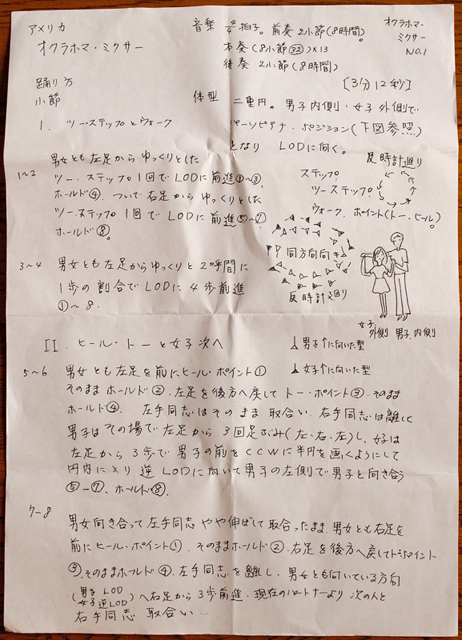 アメリカ
オクラホマ・ミクサー
音楽 4/4拍子。前奏 2小節(8時間)。
本奏(8小節)×13
後奏 2小節(8時間)
オクラホマ・
ミクサー
NO.1
[3分12秒]
踊り方
小節
体型 二重円。男子内側・女子外側で
バーソビアナ・ポジション(下図参照)
となり LODに向く。
1. ツー・ステップとウォーク
反時計廻り
ステップ
ツーステップ
ウォーク ポイント(トー・ヒール)
1~2 男女とも左足からゆっくりとした
ツー・ステップ1回でLODに前進①~③、
ホールド④。ついで右足からゆっくりとした
ツーステップ1回でLODに前進⑤~⑦
ホールド⑧。
同方向向き
反時計廻り
3~4 男女とも左足からゆっくりと2呼間に
1歩の割合でLODに4歩前進
①~8.
女子 外側
男子 内側
II. ヒール・トーと女子次へ
男子↑に向いた型
女子↑に向いた型
5~6 男女とも左足を前にヒール・ポイント①
そのままホールド②.左足を後方へ戻してトー・ポイント③.そのまま
ホールド④. 左手同志はそのまま取合い.右手同志は離して
男子はその場で左足から3回足ぶみ(左・右・左)し.女子は
左足から3歩で男子の前をCCWに半円を画くようにして
円内に入り 逆LODに向いて男子の左側で男子と向き合う
⑤~⑦、ホールド⑧.
7~8 男女向き合って左手同志やや伸ばして取合ったまま男女とも右足を
前にヒール・ポイント①.そのままホールド②.右足を後方へ戻してトーポイント
③.そのままホールド④.左手同志を離し.男女とも向いている方向
(男子LOD
女子逆LOD)へ右足から3歩前進.現在のパートナーより次の人と
右手同志 取合い…